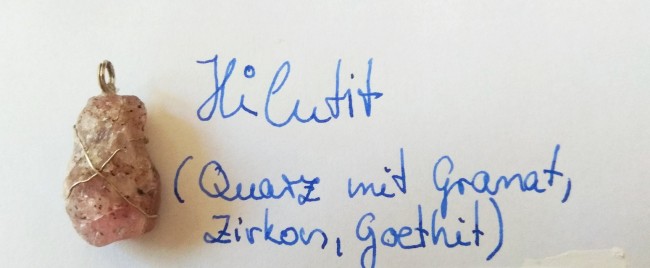 Hilutit
(Quarz mit Granat,
Zirkon, Goethit)